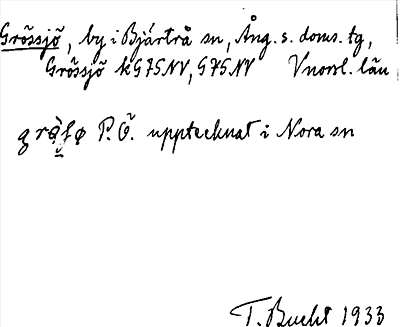 Grössjö, by i Bjärtrå sn, Ång. s. doms. tg,
Grössjö kG75NV, G75NV Vnorrl. län
P.Ö. upptecknat i Nora sn
T. Bucht 1933